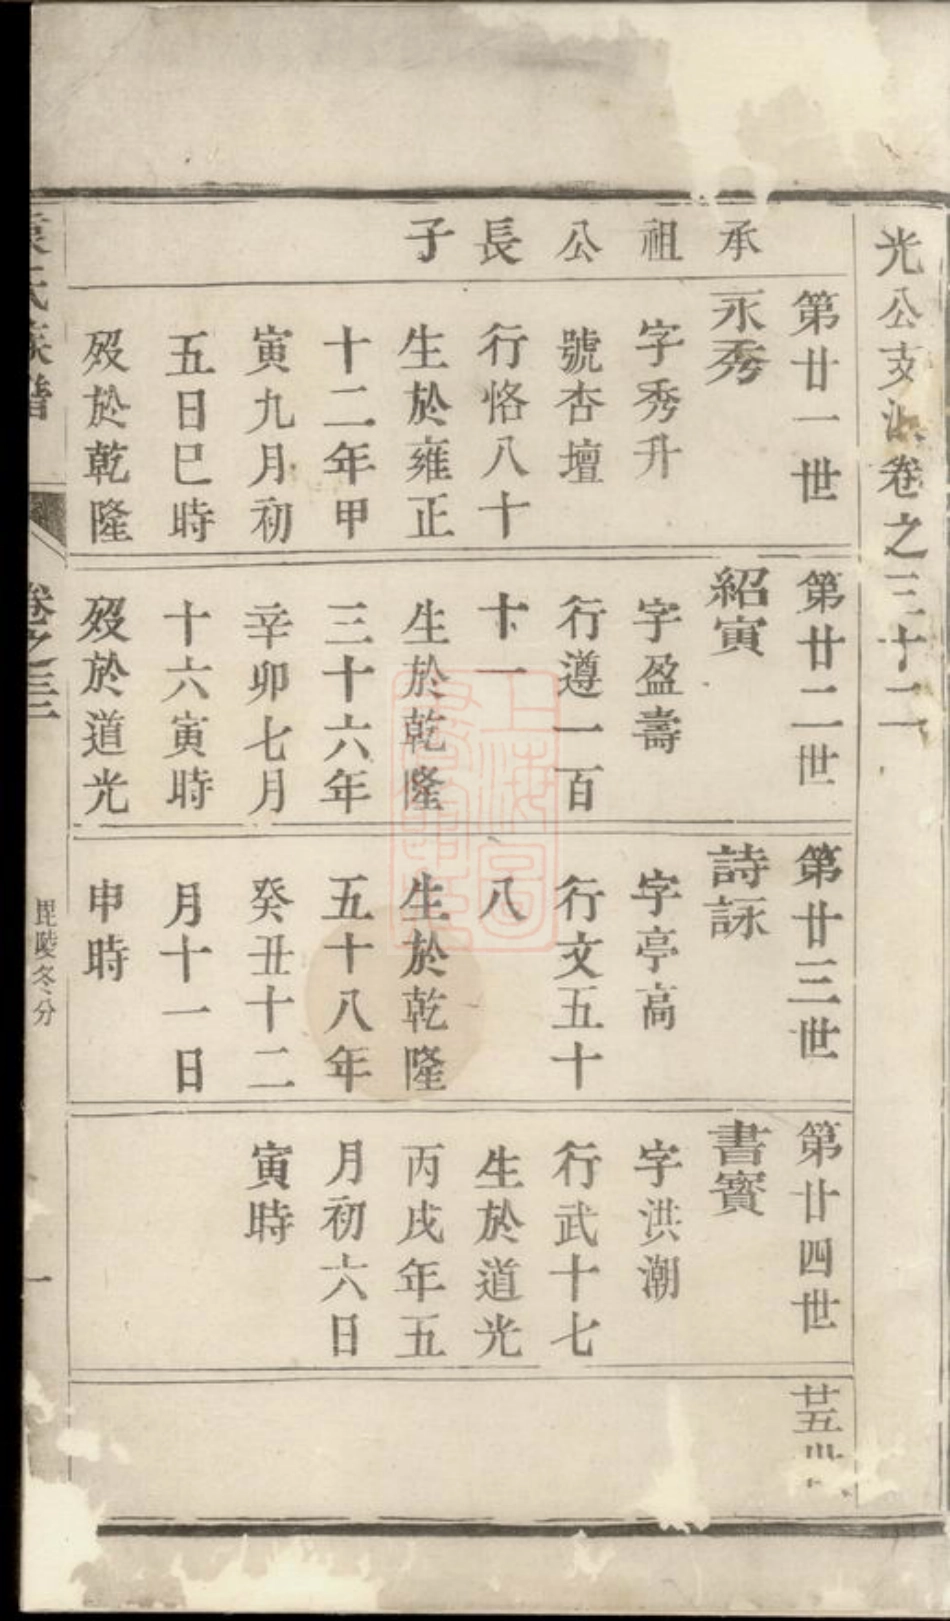 光公支派卷之三十二
第廿一世
承祖公長子
永秀
字秀升
號杏壇
行恪八十
生於雍正
十二年甲
寅九月初
五日巳時
歿於乾隆
第廿二世
紹寅
字盈壽
行遵一百
十一
生於乾隆
三十六年
辛卯七月
十六寅時
歿於道光
第廿三世
詩詠
字亭高
行文五十
八
生於乾隆
五十八年
癸丑十二
月十一日
申時
第廿四世
書賓
字洪潮
行武十七
生於道光
丙戌年五
月初六日
寅時
廿五世
氏族譜
卷之三
毘陵冬分
一
上海圖